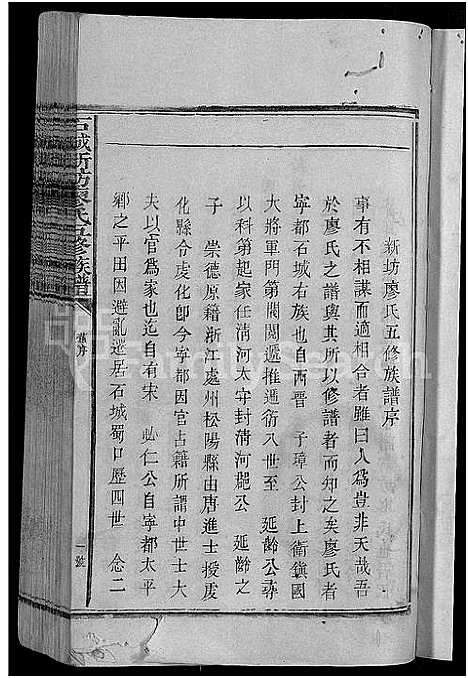 新坊廖氏五修族譜序
事有不相謀而適相合者雖曰人爲豈非天哉吾
於廖氏之譜與其所以修譜者而知之矣廖氏者
寧都石城右族也自西晋 子璋公封上衛鎮國
大將軍門第閥閱遞推遞衍八世至 延齡公彛
以科第起家任清河太守封清河郡公 延齡之
子 崇德原籍浙江處州松陽縣由唐進士授虔
化縣令虔化卽今寧都因官占籍所謂中世士大
夫以官爲家也迄自有宋 仁公自寧都太平
鄉之平田因避亂遷居石城蜀口歷四世 念二
石城新坊廖氏五修族譜
舊序
一號
FamilySearch